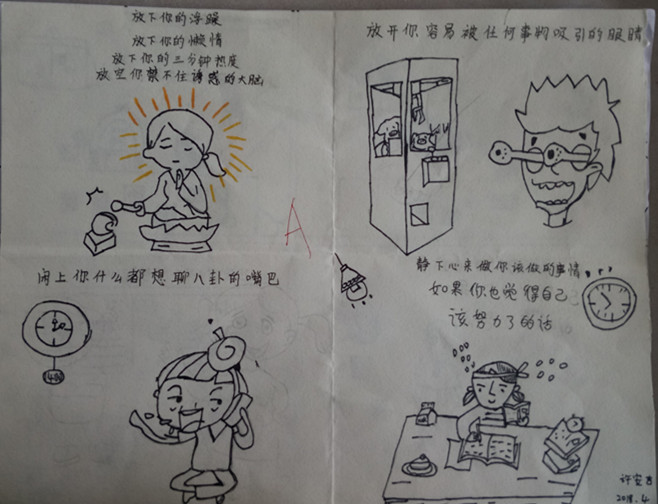 放下你的浮躁
放下你的懒惰
放下你的三分钟热度
放空你禁不住诱惑的大脑
放开你容易被任何事物吸引的眼睛
A
闭上你什么都想聊八卦的嘴巴
静下心来做你该做的事情
如果你也觉得自己
该努力了的话
2018.4